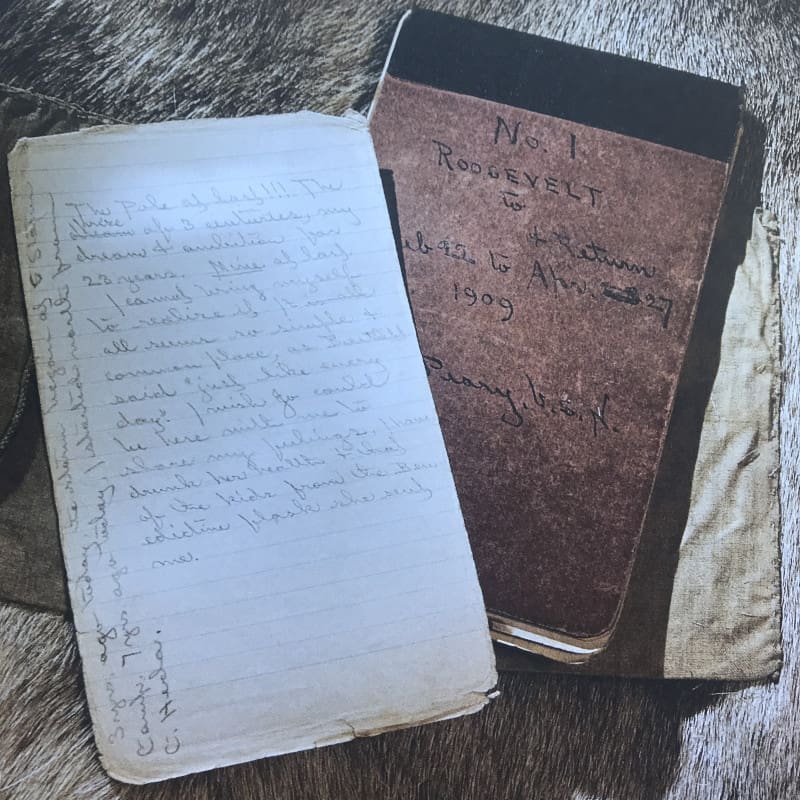 The Pole at last!!! The
prize of 3 centuries, my
dream & ambition for
23 years. Mine at last.
I cannot bring myself
to realize it. It
all seems so simple &
common place, as Bartlett
said "just like every
day." I wish Jo could
be here with me to
share my feelings. I have
drunk her health & that
of the kids from the Ben-
edictine flask she sent
me.
3 yrs. ago today the storm began at 6 Storm
Camp, 7 yrs. ago today, I started north from
C. Hecla.
No. 1
ROOSEVELT
to
& Return
eb 22 to Apr. 27
1909
Peary, U.S.N.